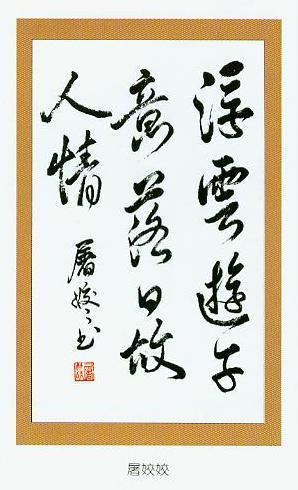 浮雲遊子
意落日故
人情
屠姣々书
屠姣姣